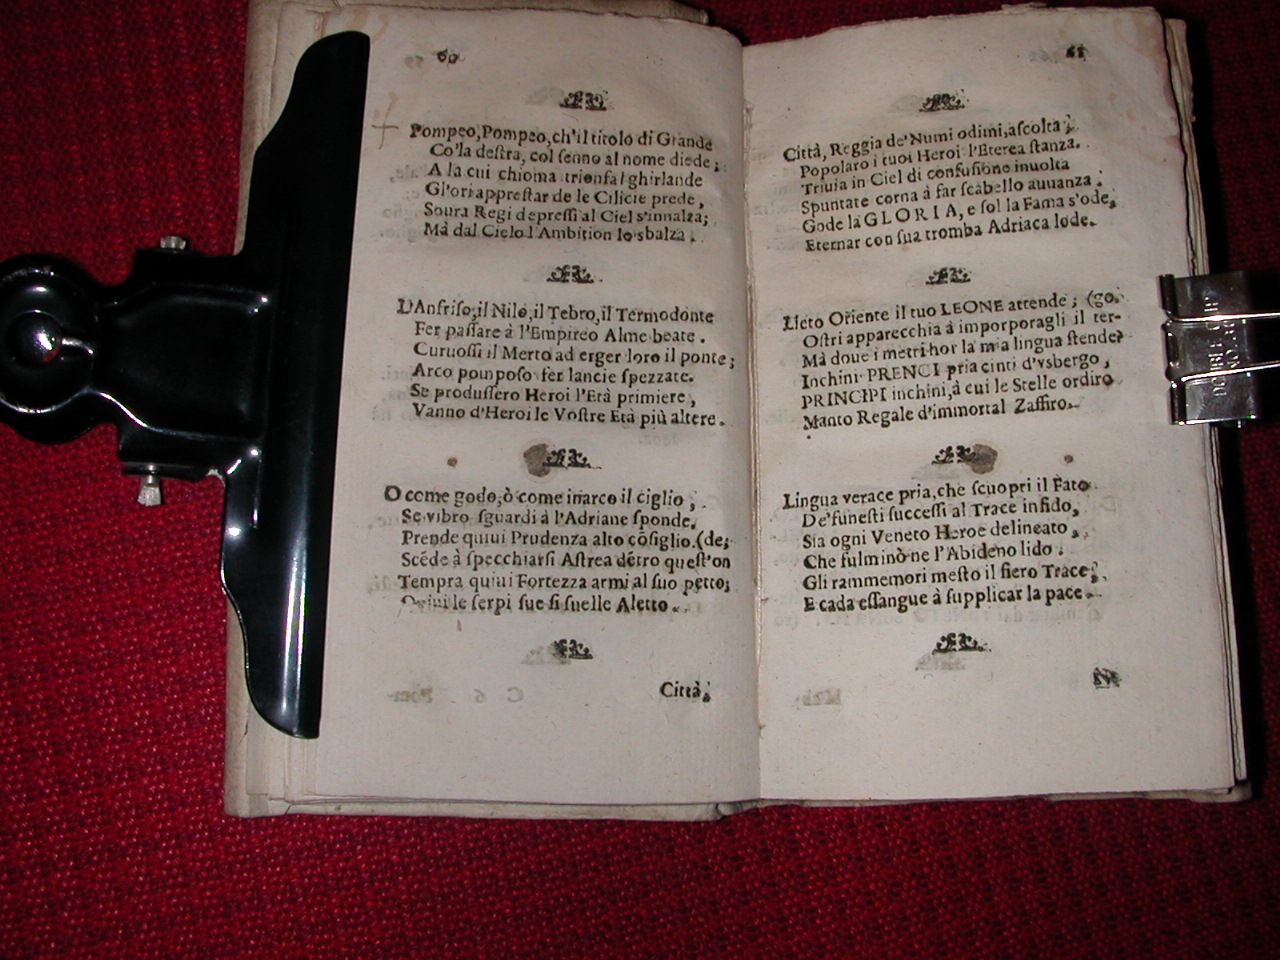 60
Pompeo, Pompeo, ch'il titolo di Grande
Co'la deſtra, col ſenno al nome diede;
A la cui chioma trionfal ghirlande
Gl'ori appreſtar de le Cilicie prede,
Soura Regi depreſſi al Ciel s'innalza;
Mà dal Cielo l'Ambition lo sbalza.
L'Anfriſo, il Nilo, il Tebro, il Termodonte
Fer paſſare à l'Empireo Alme beate.
Curuoſſi il Merto ad erger loro il ponte;
Arco pompoſo fer lancie ſpezzate.
Se produſſero Heroi l'Età primiere,
Vanno d'Heroi le Voſtre Età più altere.
O come godo, ò come inarco il ciglio,
Se vibro ſguardi à l'Adriane ſponde,
Prende quiui Prudenza alto cõſiglio. (de;
Scẽde à ſpecchiarſi Aſtrea dẽtro queſt'on
Tempra quiui Fortezza armi al ſuo petto;
Quiui le ſerpi ſue ſi ſuelle Aletto.
Città,
61
Città, Reggia de'Numi odimi, aſcolta;
Popolaro i tuoi Heroi l'Eterea ſtanza.
Triuia in Ciel di confuſione inuolta
Spuntate corna à far ſcabello auuanza.
Gode la GLORIA, e ſol la Fama s'ode,
Eternar con ſua tromba Adriaca lode.
Lieto Oriente il tuo LEONE attende; (go.
Oſtri apparecchia à imporporagli il ter-
Mà doue i metri hor la mia lingua ſtende?
Inchini PRENCI pria cinti d'vsbergo,
PRINCIPI inchini, à cui le Stelle ordiro
Manto Regale d'immortal Zaffiro.
Lingua verace pria, che ſcuopri il Fato
De'funeſti ſucceſſi al Trace infido,
Sia ogni Veneto Heroe delineato,
Che fulminò ne l'Abideno lido.
Gli rammemori meſto il fiero Trace;
E cada eſſangue à ſupplicar la pace.